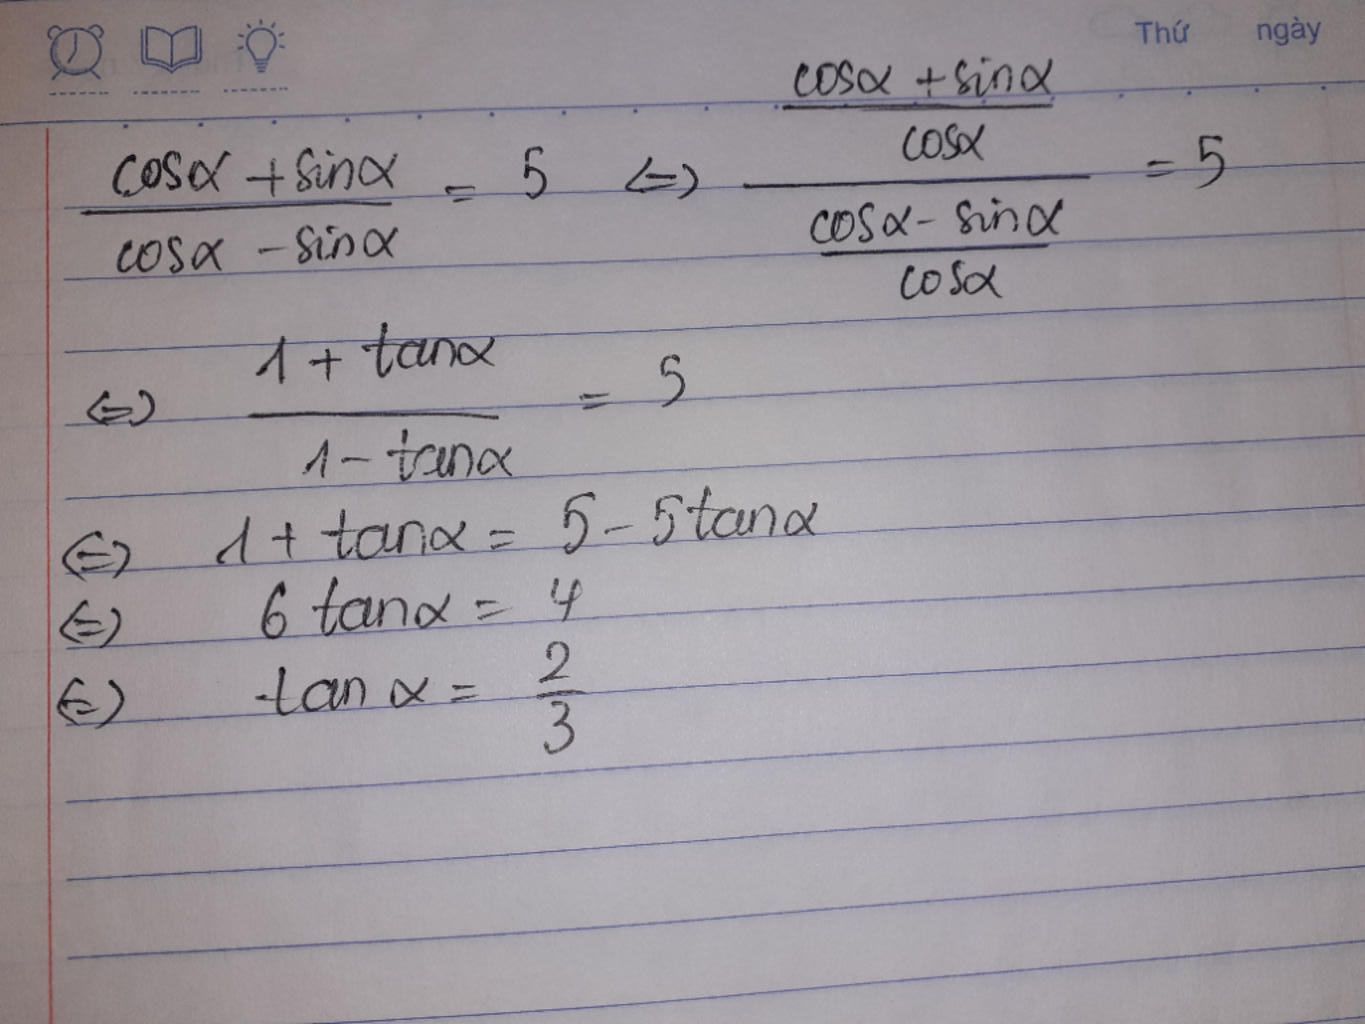 Thứ ngày
(cosα + sinα)/(cosα - sinα) = 5 <=> ((cosα + sinα)/cosα)/((cosα - sinα)/cosα) = 5
<=> (1 + tanα)/(1 - tanα) = 5
<=> 1 + tanα = 5 - 5tanα
<=> 6 tanα = 4
<=> tan α = 2/3